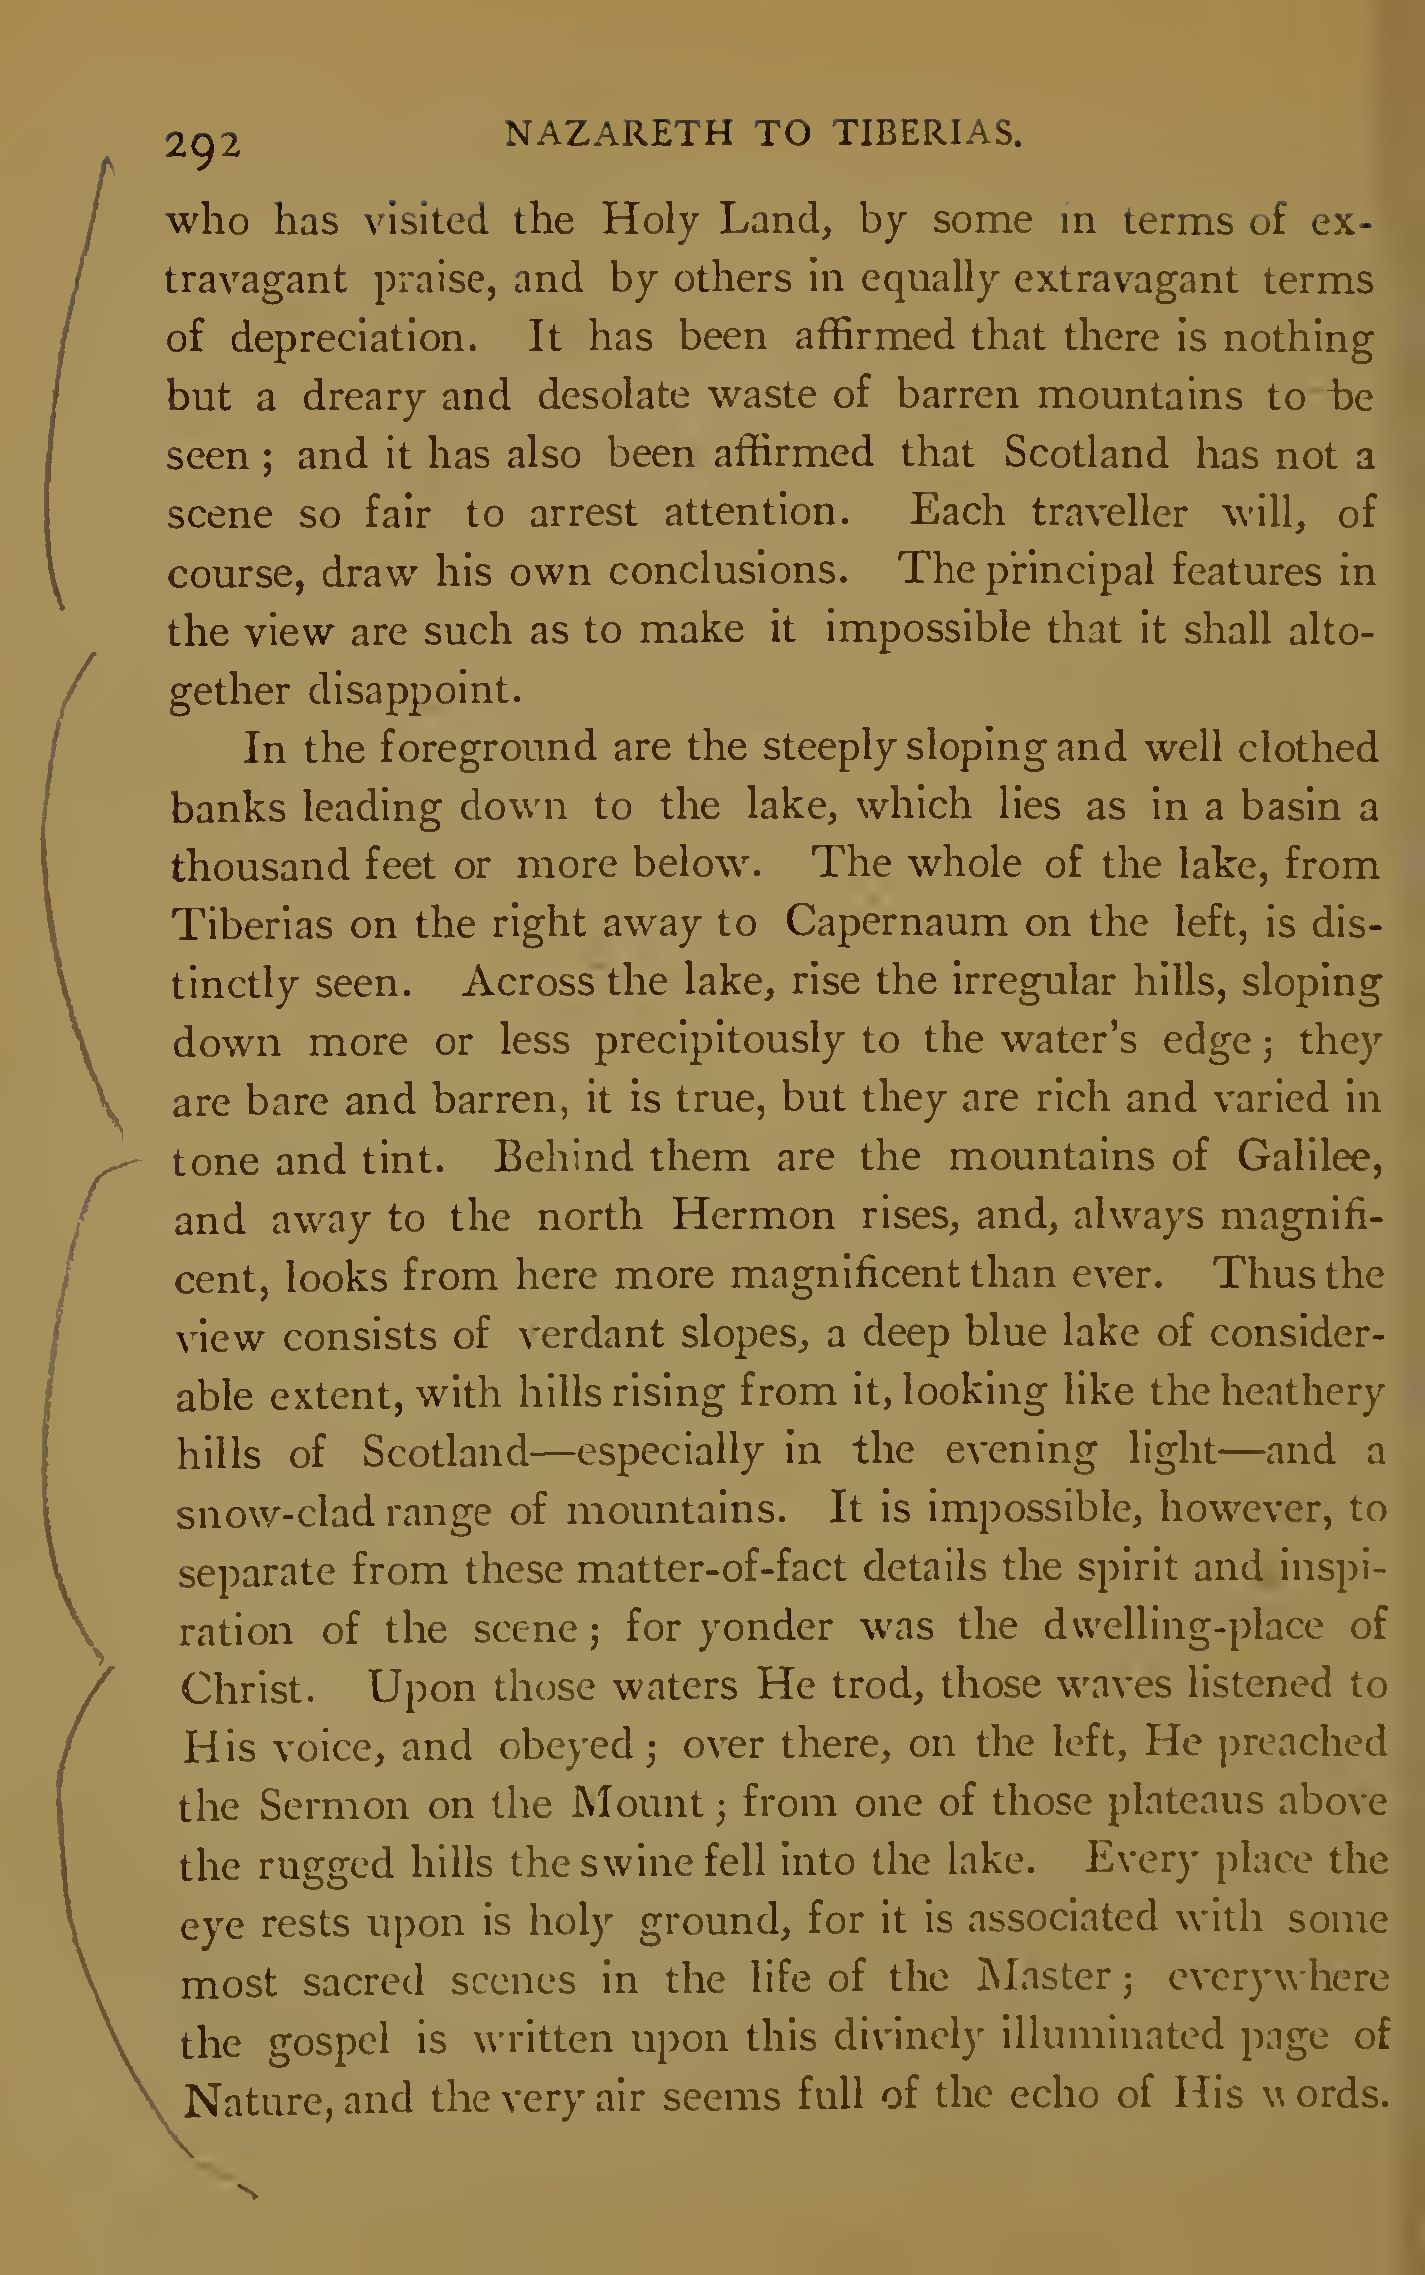 292 NAZARETH TO TIBERIAS.
who has visited the Holy Land, by some in terms of ex-
travagant praise, and by others in equally extravagant terms
of depreciation. It has been affirmed that there is nothing
but a dreary and desolate waste of barren mountains to be
seen ; and it has also been affirmed that Scotland has not a
scene so fair to arrest attention. Each traveller will, of
course, draw his own conclusions. The principal features in
the view are such as to make it impossible that it shall alto-
gether disappoint.
In the foreground are the steeply sloping and well clothed
banks leading down to the lake, which lies as in a basin a
thousand feet or more below. The whole of the lake, from
Tiberias on the right away to Capernaum on the left, is dis-
tinctly seen. Across the lake, rise the irregular hills, sloping
down more or less precipitously to the water's edge ; they
are bare and barren, it is true, but they are rich and varied in
tone and tint. Behind them are the mountains of Galilee,
and away to the north Hermon rises, and, always magnifi-
cent, looks from here more magnificent than ever. Thus the
view consists of verdant slopes, a deep blue lake of consider-
able extent, with hills rising from it, looking like the heathery
hills of Scotland—especially in the evening light—and a
snow-clad range of mountains. It is impossible, however, to
separate from these matter-of-fact details the spirit and inspi-
ration of the scene ; for yonder was the dwelling-place of
Christ. Upon those waters He trod, those waves listened to
His voice, and obeyed ; over there, on the left, He preached
the Sermon on the Mount ; from one of those plateaus above
the rugged hills the swine fell into the lake. Every place the
eye rests upon is holy ground, for it is associated with some
most sacred scenes in the life of the Master ; everywhere
the gospel is written upon this divinely illuminated page of
Nature, and the very air seems full of the echo of His words.